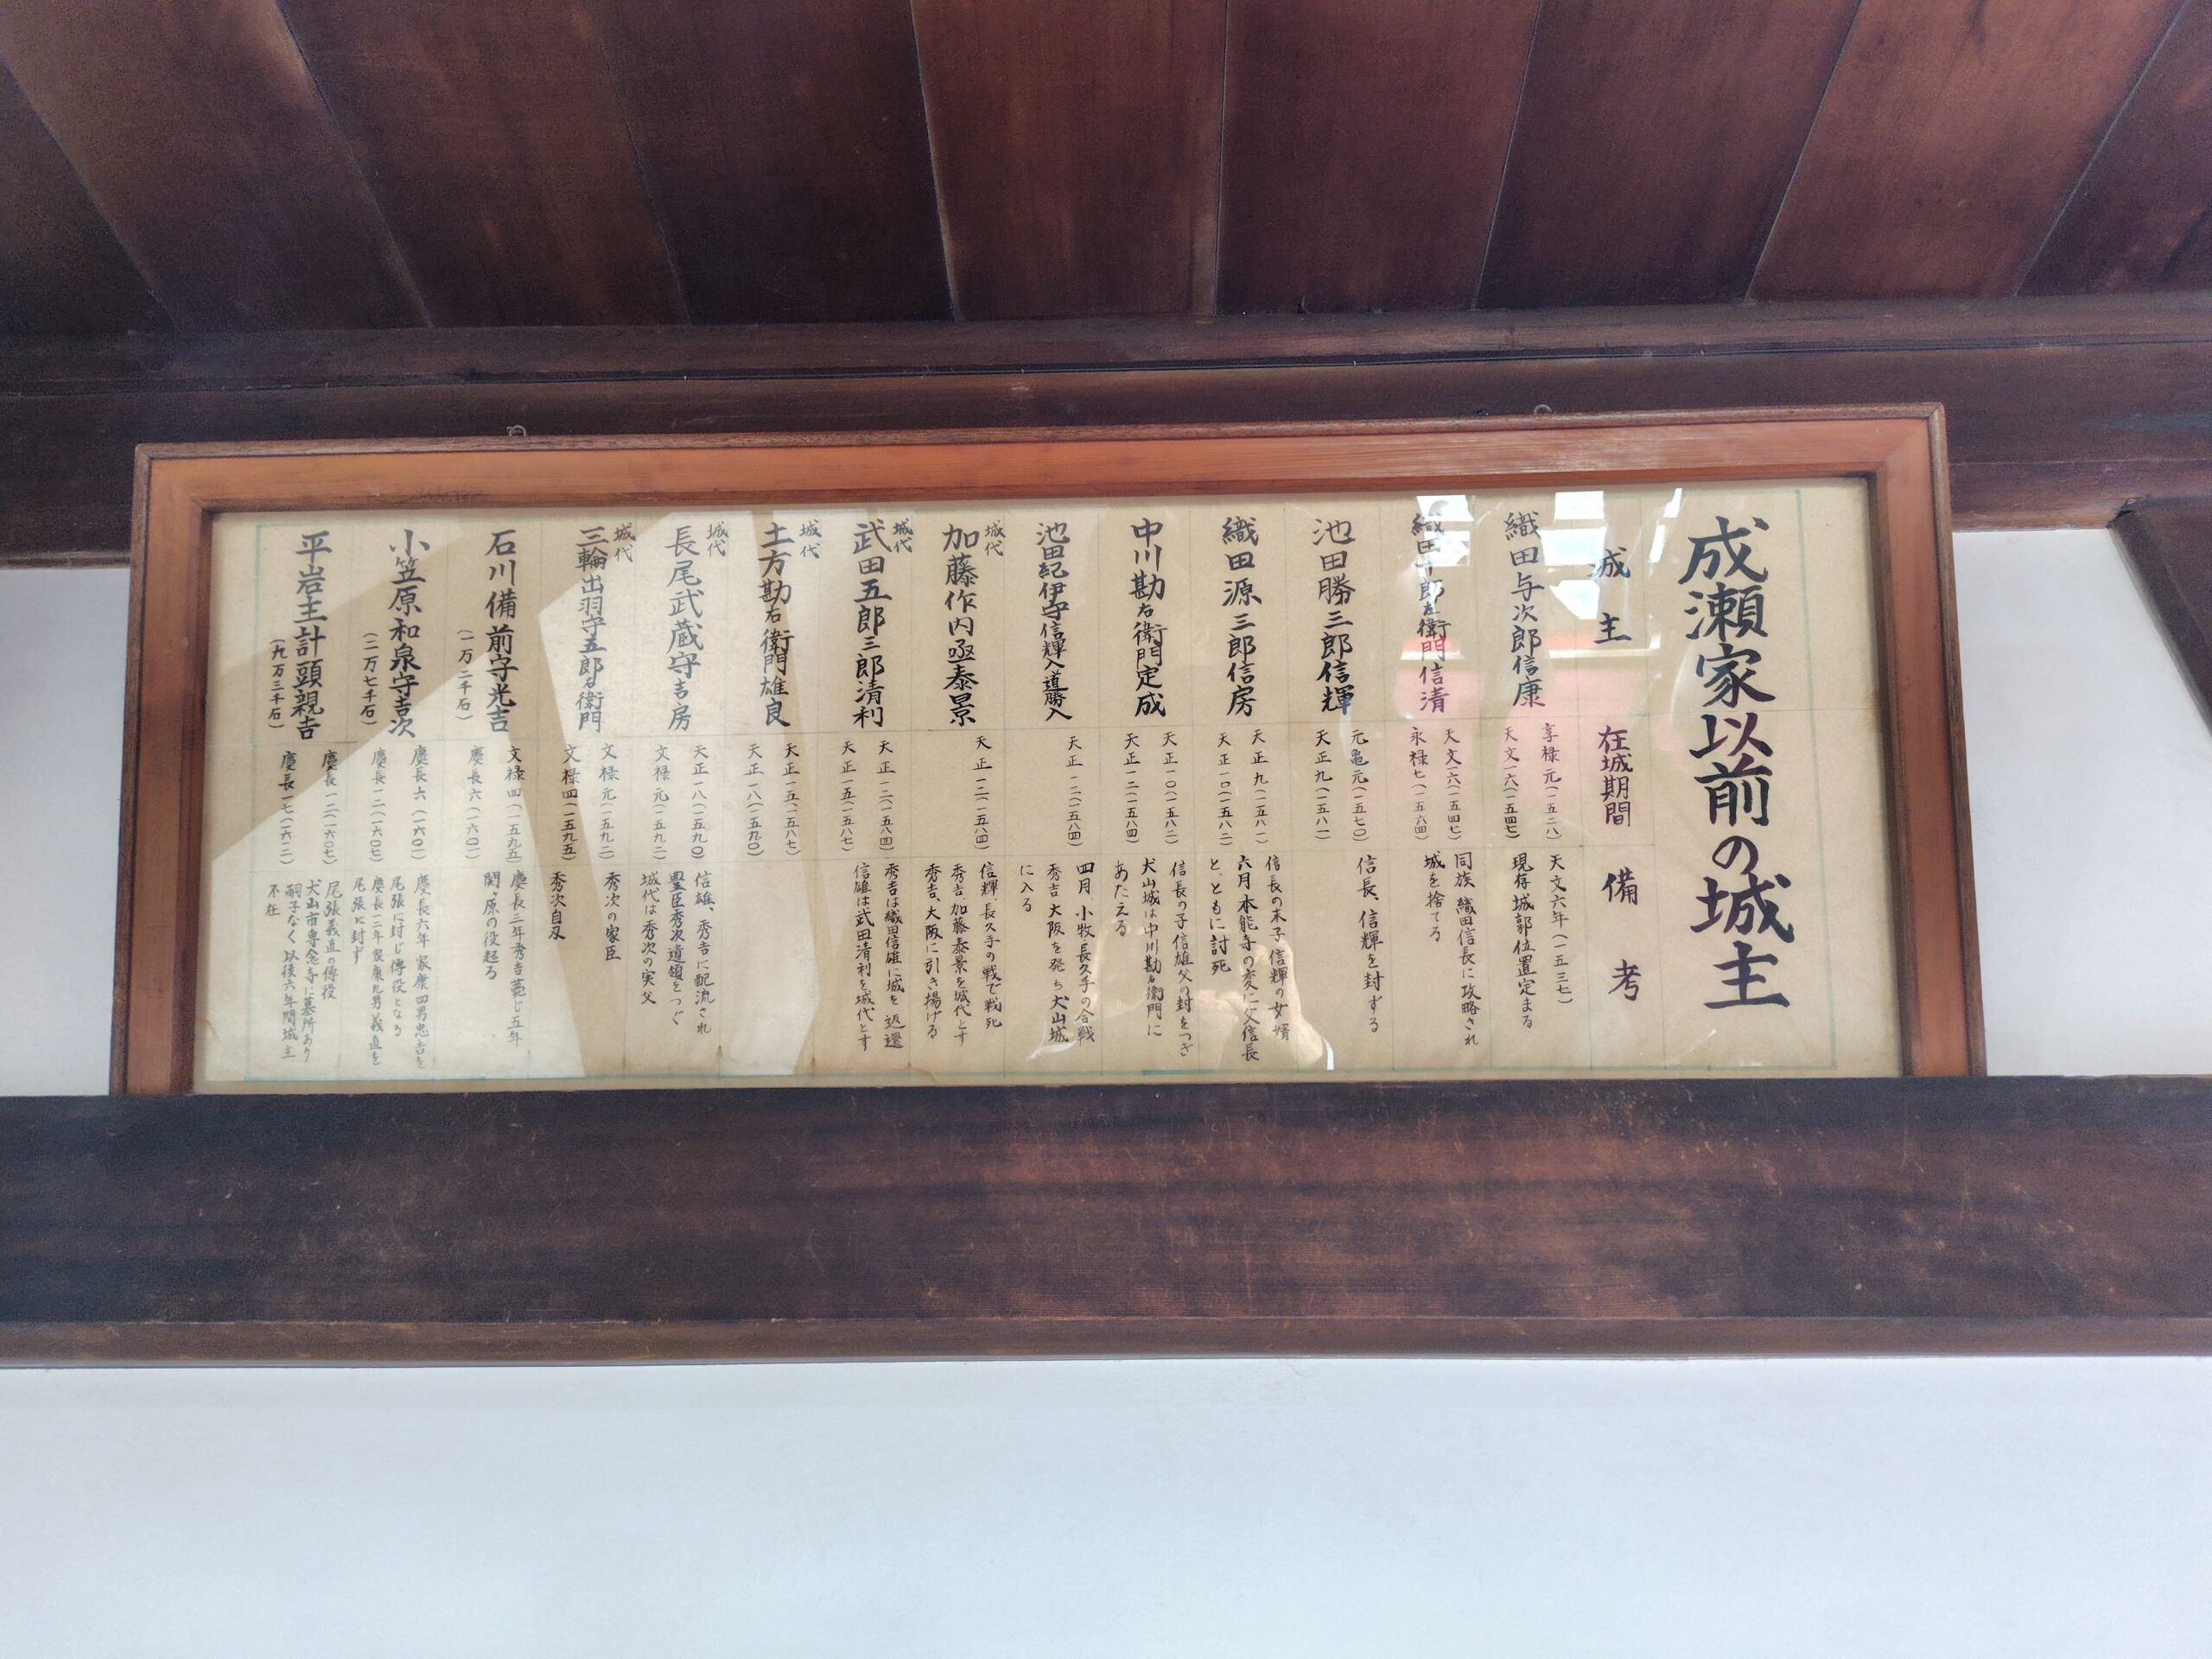 成瀬家以前の城主
城主
在城期間
備考
織田与次郎信康
享禄元(一五二八)
天文一六(一五四七)
天文六年(一五三七)
現存城郭位置定まる
織田十郎左衛門信清
天文一六(一五四七)
永禄七(一五六四)
同族 織田信長に攻略され
城を捨てる
池田勝三郎信輝
元亀元(一五七〇)
天正九(一五八一)
信長、信輝を封ずる
織田源三郎信房
天正九(一五八一)
天正一〇(一五八二)
信長の末子 信輝の女婿
六月本能寺の変に父信長
と、ともに討死
中川勘右衛門定成
天正一〇(一五八二)
天正一二(一五八四)
信長の子信雄父の封をつぎ
犬山城は中川勘右衛門に
あたえる
池田紀伊守信輝入道勝入
天正一二(一五八四)
四月 小牧長久手の合戦
秀吉大阪を発ち犬山城
に入る
城代
加藤作内亟泰景
天正一二(一五八四)
信輝、長久手の戦で戦死
秀吉、加藤泰景を城代とす
秀吉、大阪に引き揚げる
城代
武田五郎三郎清利
天正一二(一五八四)
天正一五(一五八七)
秀吉は織田信雄に城を返還
信雄は武田清利を城代とす
城代
土方勘右衛門雄良
天正一五(一五八七)
天正一八(一五九〇)
城代
長尾武蔵守吉房
天正一八(一五九〇)
文禄元(一五九二)
信雄、秀吉に配流され
豊臣秀次遺領をつぐ
城代は秀次の実父
城代
三輪出羽守五郎右衛門
文禄元(一五九二)
文禄四(一五九五)
秀次の家臣
秀次自刃
石川備前守光吉
(一万二千石)
文禄四(一五九五)
慶長六(一六〇一)
慶長三年秀吉薨じ五年
関ヶ原の役起る
小笠原和泉守吉次
(二万七千石)
慶長六(一六〇一)
慶長一二(一六〇七)
慶長六年家康四男忠吉を
尾張に封じ傅役となる
慶長一二年家康九男義直を
尾張に封ず
平岩主計頭親吉
(九万三千石)
慶長一二(一六〇七)
慶長一七(一六一二)
尾張義直の傅役
犬山市専念寺に墓所あり
嗣子なく以後六年間城主
不在